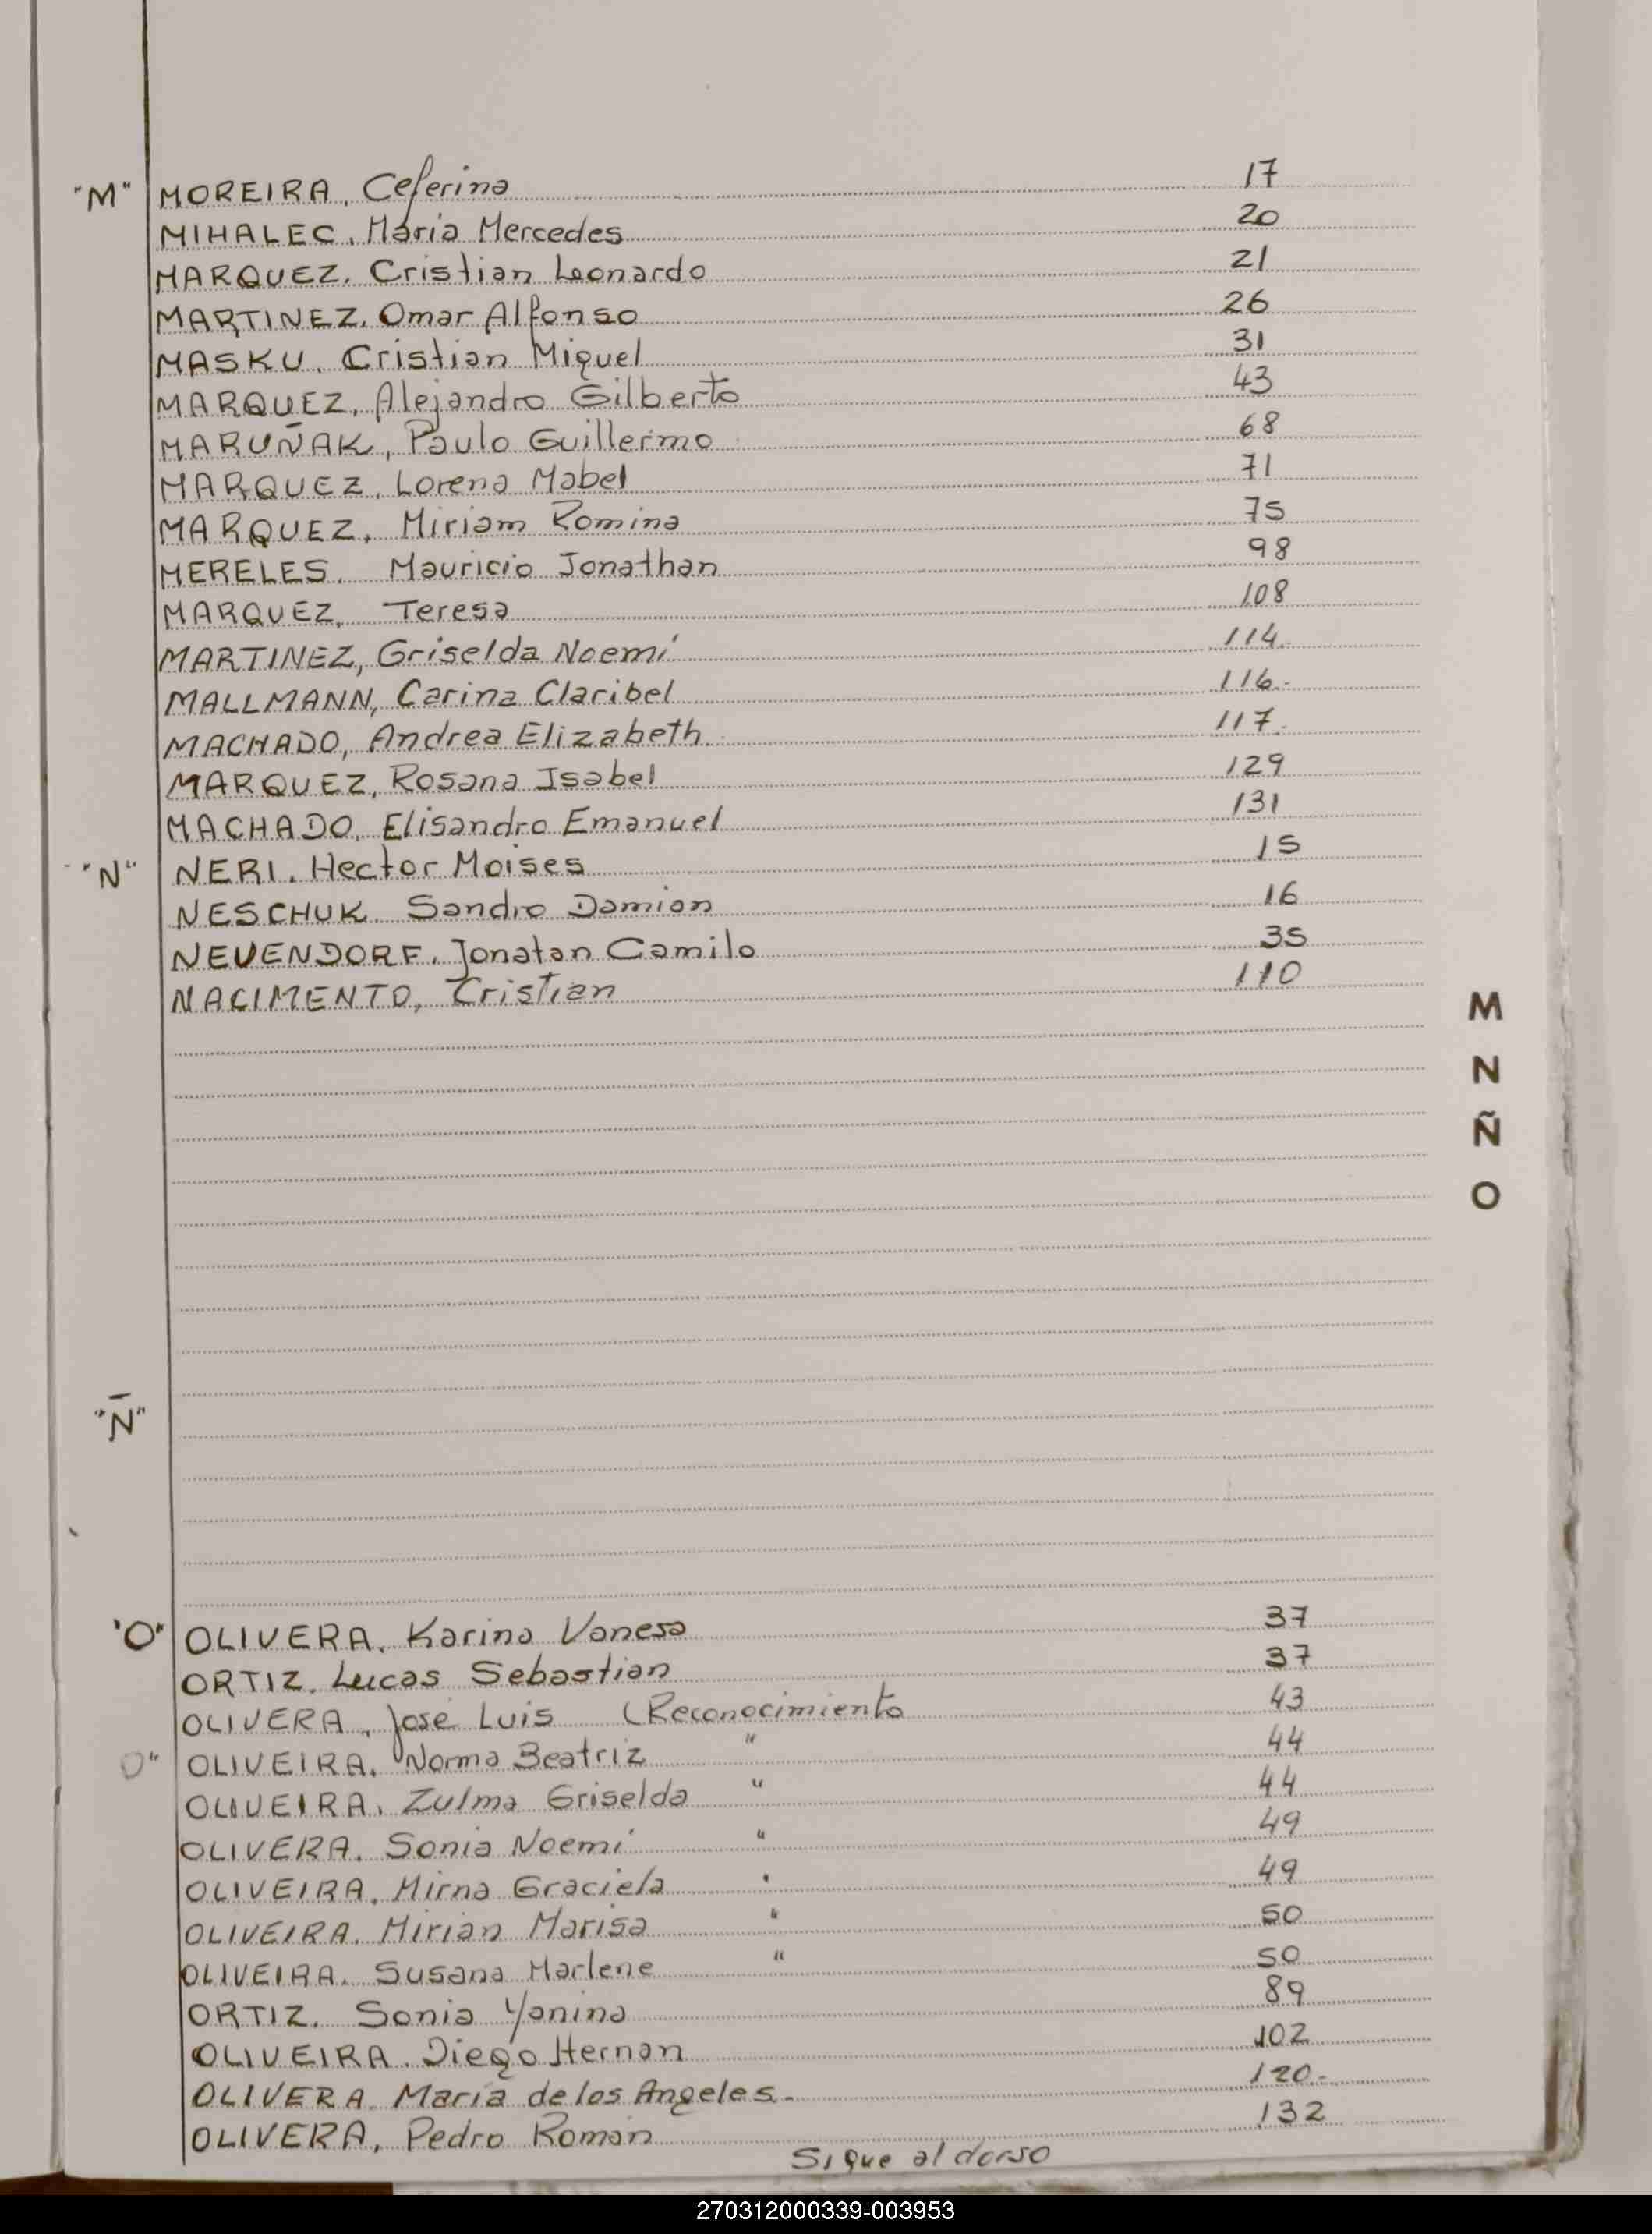 "M" MOREIRA, Ceferina 17
MIHALEC, María Mercedes 20
MARQUEZ, Cristian Leonardo 21
MARTINEZ, Omar Alfonso 26
MASKU, Cristian Miguel 31
MARQUEZ, Alejandro Gilberto 43
MARUÑAK, Paulo Guillermo 68
MARQUEZ, Lorena Mabel 71
MARQUEZ, Miriam Romina 75
MERELES, Mauricio Jonathan 98
MARQUEZ, Teresa 108
MARTINEZ, Griselda Noemí 114.
MALLMANN, Carina Claribel 116.-
MACHADO, Andrea Elizabeth 117.
MARQUEZ, Rosana Isabel 129
MACHADO, Elisandro Emanuel 131
"N" NERI, Hector Moises 15
NESCHUK Sandro Damian 16
NEUENDORF, Jonatan Camilo 35
NACIMENTO, Cristian 110
M
N
Ñ
O
"Ñ"
"O" OLIVERA, Karina Vanesa 37
ORTIZ, Lucas Sebastian 37
OLIVERA, José Luis (Reconocimiento 43
O" OLIVEIRA, Norma Beatriz " 44
OLIVEIRA, Zulma Griselda " 44
OLIVERA, Sonia Noemí " 49
OLIVEIRA, Mirna Graciela " 49
OLIVEIRA, Mirian Marisa " 50
OLIVEIRA, Susana Marlene " 50
ORTIZ, Sonia Yanina 89
OLIVEIRA, Diego Hernan 102
OLIVERA, María de los Angeles.- 120.-
OLIVERA, Pedro Roman 132
Sigue al dorso
270312000339-003953